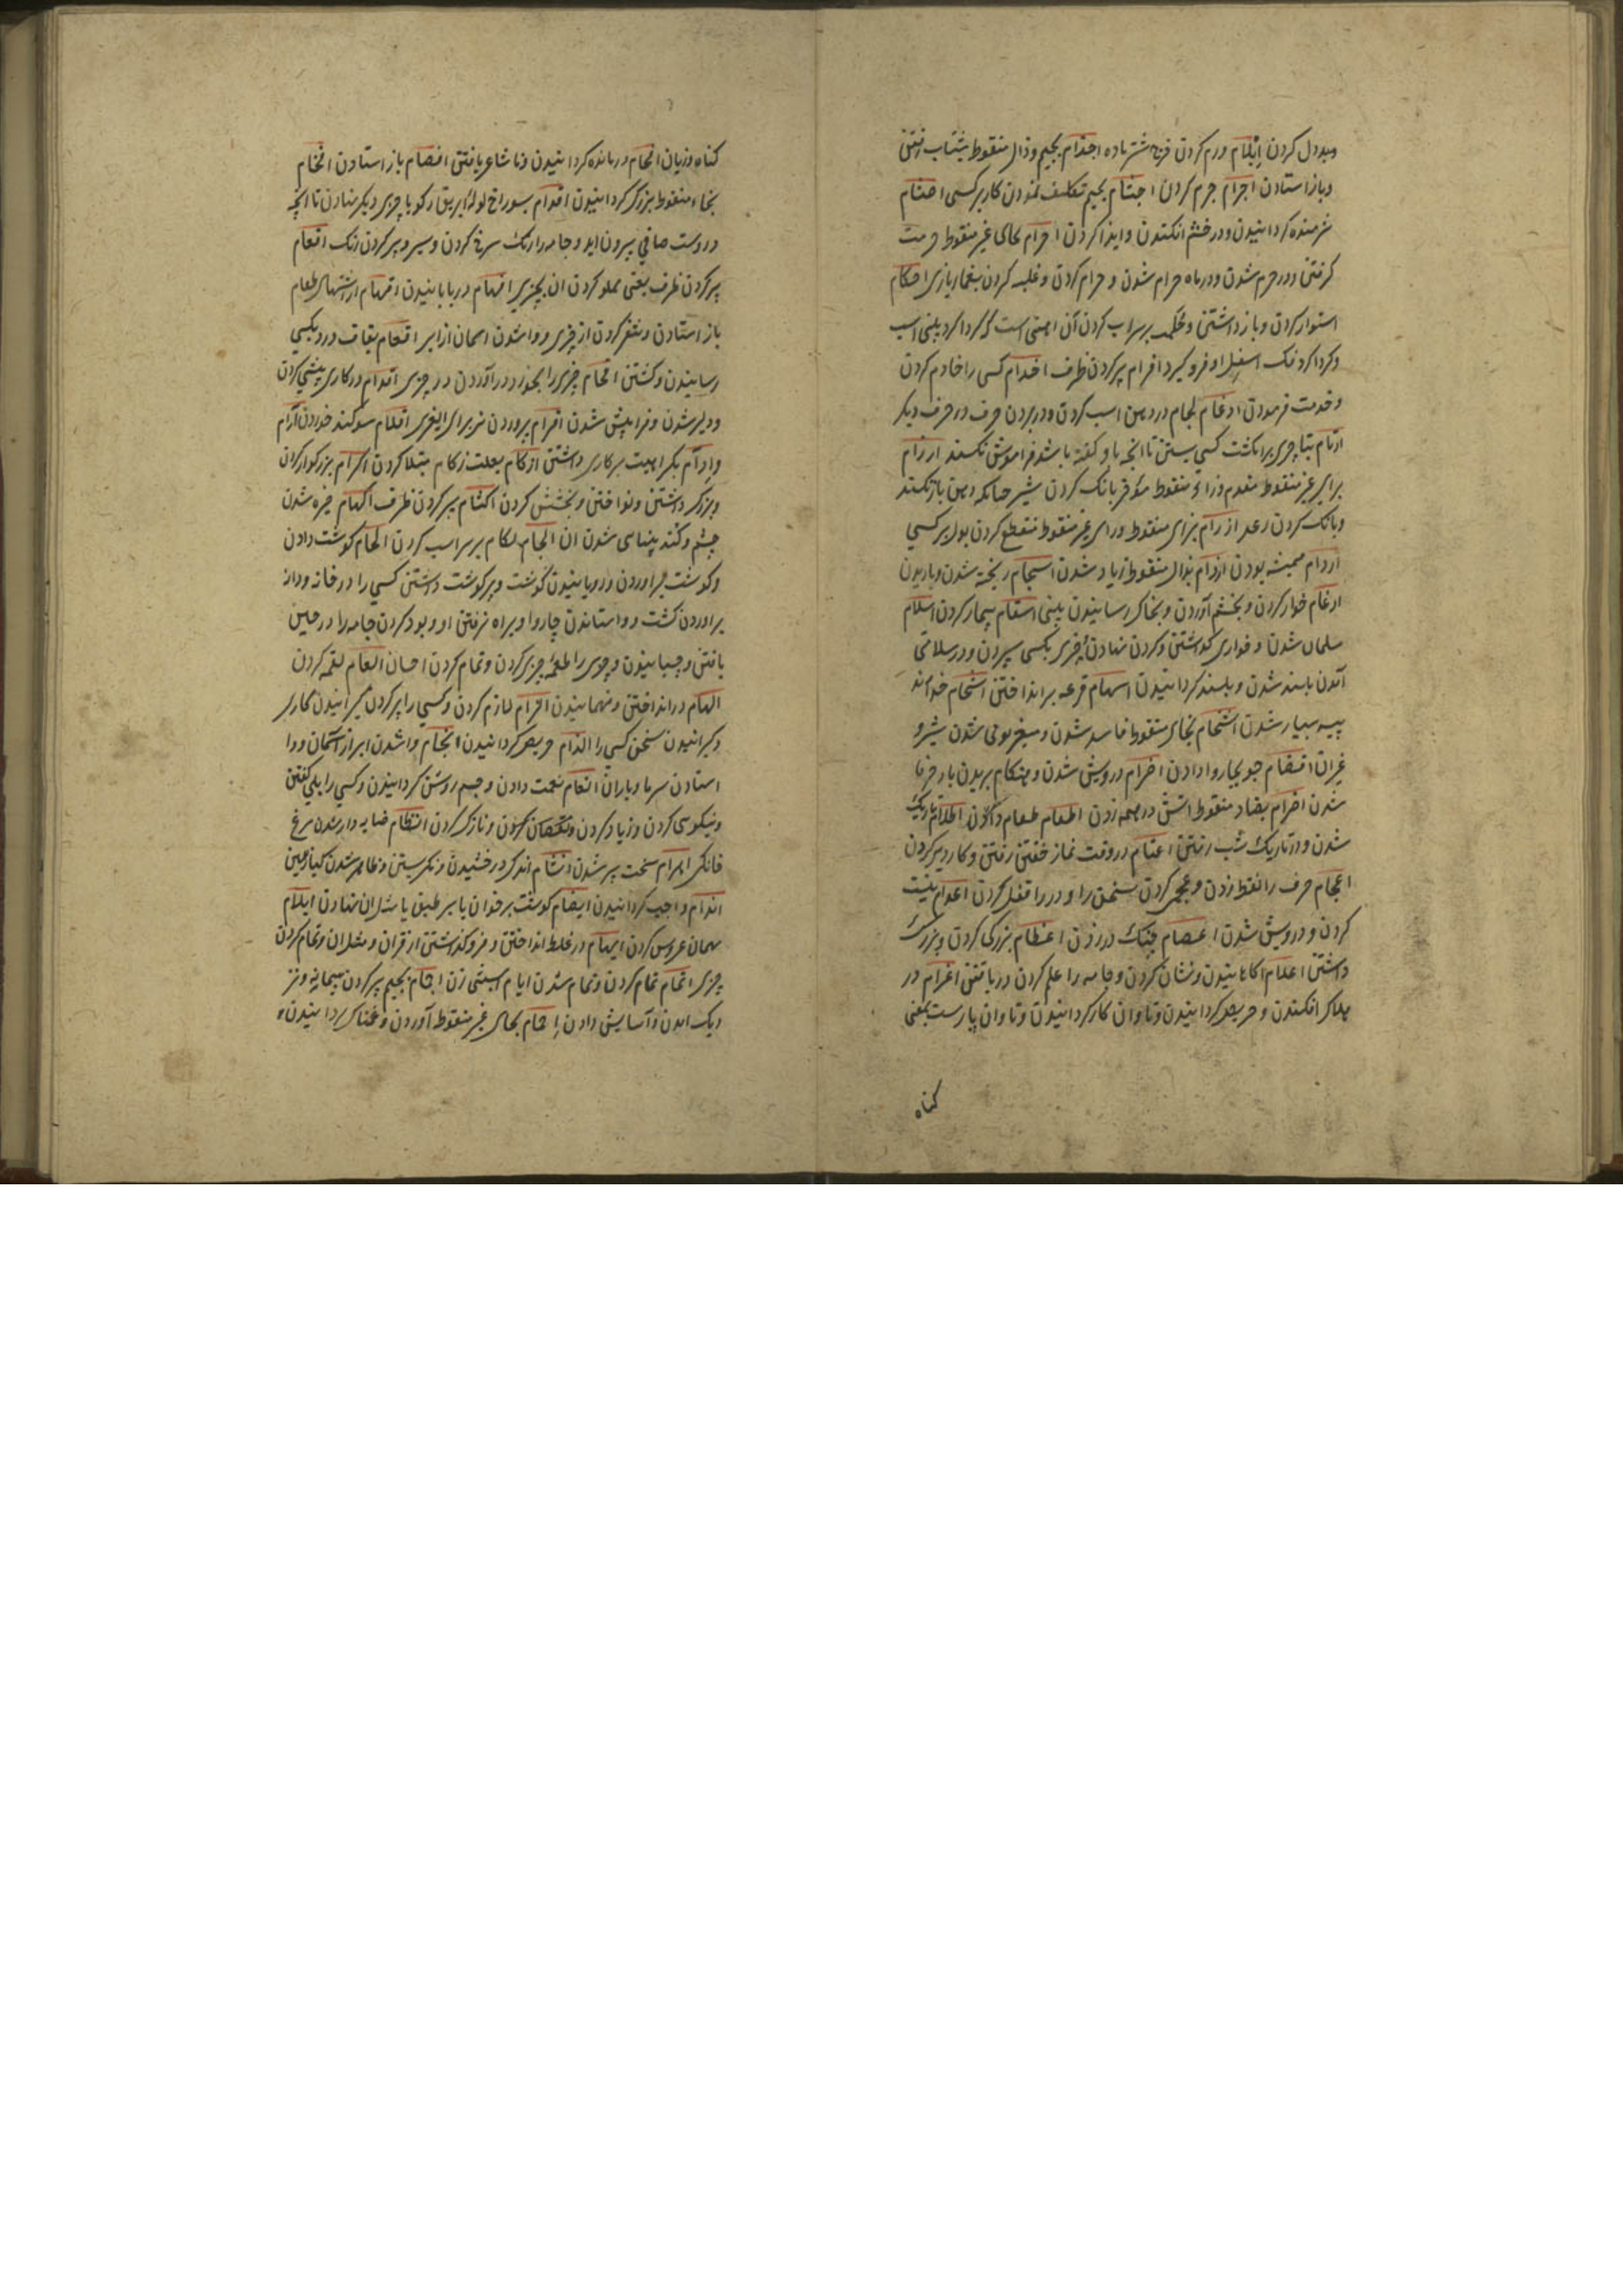 وبددل کردن ابلام ورم کردن فرج شتر ماده اجذام بجیم وذال منقوط بشتاب رفتن
وباز استادن اجرام جرم کردن اجشام بجیم تکلیف نمودن کار بر کسی احشام
شرمنده کردانیدن ودر خشم افکندن وایذا کردن احرام بحای غیر منقوط حرمت
کرفتن ودر حرم شدن ودر ماه حرام شدن و حرام کردن وغلبه کردن بقمار بازی احکام
استوار کردن وباز داشتن وحکمه بر سر اسب کردن آن اهنی است که کرداکرد بینی اسب
وکرداکرد فک اسفل او فرو کیرد افرام پر کردن ظرف اخدام کسی را خادم کردن
وخدمت فرمودن ادغام لجام در دهن اسب کردن ودر بردن حرف در حرف دیکر
ارتام بتا چیزی بر انکشت کسی بستن تا انچه باو کفته باشد فراموش نکند ارزام
برای غیر منقوط مقدم وزاء منقوط مؤخر بانک کردن شتر چنانکه دهن باز نکند
وبانک کردن رعد ازرام بزای منقوط ورای غیر منقوط منقطع کردن بول بر کسی
اردام همیشه بودن ارذام بذال منقوط زیاد شدن اسجام ریخته شدن وباریدن
ارغام خوار کردن وبخشم آوردن وبخاک رسانیدن بینی اسقام بیمار کردن اسلام
مسلمان شدن و فراری کذاشتن وکردن نهادن چیزی بکسی سپردن ودر سلامتی
آمدن بلند شدن وبلند کردانیدن اسهام قرعه بر انداختن اشحام خداوند
پیه بسیار شدن اشخام بخای منقوط فاسد شدن ومتغیر بوی شدن شیر و
غیر ان اقضام جو بچاروا دادن اصرام درویش شدن وهنکام بریدن بار خرما
شدن اضرام بضاد منقوط اتش در هیمه زدن اطعام طعام دادن اظلام تاریک
شدن ودر تاریک شب رفتن اعتام در وقت نماز خفتن رفتن وکار دیر کردن
اعجام حرف را نقط زدن وعجمی کردن سخن را ودر را قفل کردن اعدام نیست
کردن ودرویش شدن اعصام چنک در زدن اعظام بزرک کردن وبزرک
داشتن اعلام اکاهانیدن ونشان کردن وجامه را علم کردن دریافتن اغرام در
هلاک افکندن وحریص کردانیدن وتاوان کار کردانیدن وتاوان پارست بمعنی
کناه
کناه وزیان افحام درمانده کردانیدن وناشاعر یافتن افصام باز استادن افخام
بخاء منقوط بزرک کردانیدن افدام بسوراخ لولهٔ ابریق رکو یا چیزی دیکر نهادن تا انچه
در وست صافی بیرون اید وجامه را رنک سرخ کردن وسیر وپر کردن رنک افعام
پر کردن ظرف یعنی مملو کردن ان بچیزی افهام دریابانیدن اقهام از اشتهای طعام
باز استادن وتنفر کردن از چیزی ووا شدن اسمان از ابر اقعام بقاف درد بکسی
رسانیدن وکشتن اقحام چیزی را بخود در آوردن در چیزی اقدام در کاری پیشی کردن
ودلیر شدن وفراپیش شدن اقرام پروردن نر برای لاغری اقسام سوکند خوردن اکرام
وابرام بکراهیت بر کاری داشتن ازکام بعلت زکام مبتلا کردن اکرام بزرکوار کردن
وبزرک داشتن ونواختن وبخشش کردن اکتام پر کردن ظرف اکهام خیره شدن
چشم وکند بینایی شدن ان الجام لکام بر سر اسب کردن الحام کوشت دادن
وکوشت بر اوردن ورویانیدن کوشت وپر کوشت داشتن کسی را در خانه ودانه
بر اوردن کشت وواستاندن چاروا وبراه نرفتن او وپود کردن جامه را در حین
بافتن وچسبانیدن وچیزی را طعمه چیزی کردن وتمام کردن احسان القام لقمه کردن
الهام در انداختن وفهمانیدن الزام لازم کردن وکسی را پر کردن کیرانیدن کاری
وکیرانیدن سخن کسی را الذام حریص کردانیدن انجام وا شدن ابر از آسمان ووا
استادن سرما وباران انعام نعمت دادن وچشم روشن کردانیدن وکسی را بلی کفتن
ونیکویی کردن وزیاد کردن ونقصان کردن ونازک کردن انظام خایه دار شدن مرغ
خانکی ابرام سخت پر شدن انشام اندک درخشیدن ونکریستن وظاهر شدن کیاه زمین
اندام واجب کردانیدن ایضام کوشت بر خوان یا بر طبق یا مثل ان نهادن ایلام
مهمان عروس کردن ایهام در غلط انداختن وفرو کذاشتن از قران ومثل ان وتمام کردن
چیزی اتمام تمام کردن وتمام شدن ایام ابستنی زن اجمام بجیم پر کردن پیمانه ونز
دیک امدن وآسایش دادن احمام بحای غیر منقوط آوردن وغمناک کردانیدن و